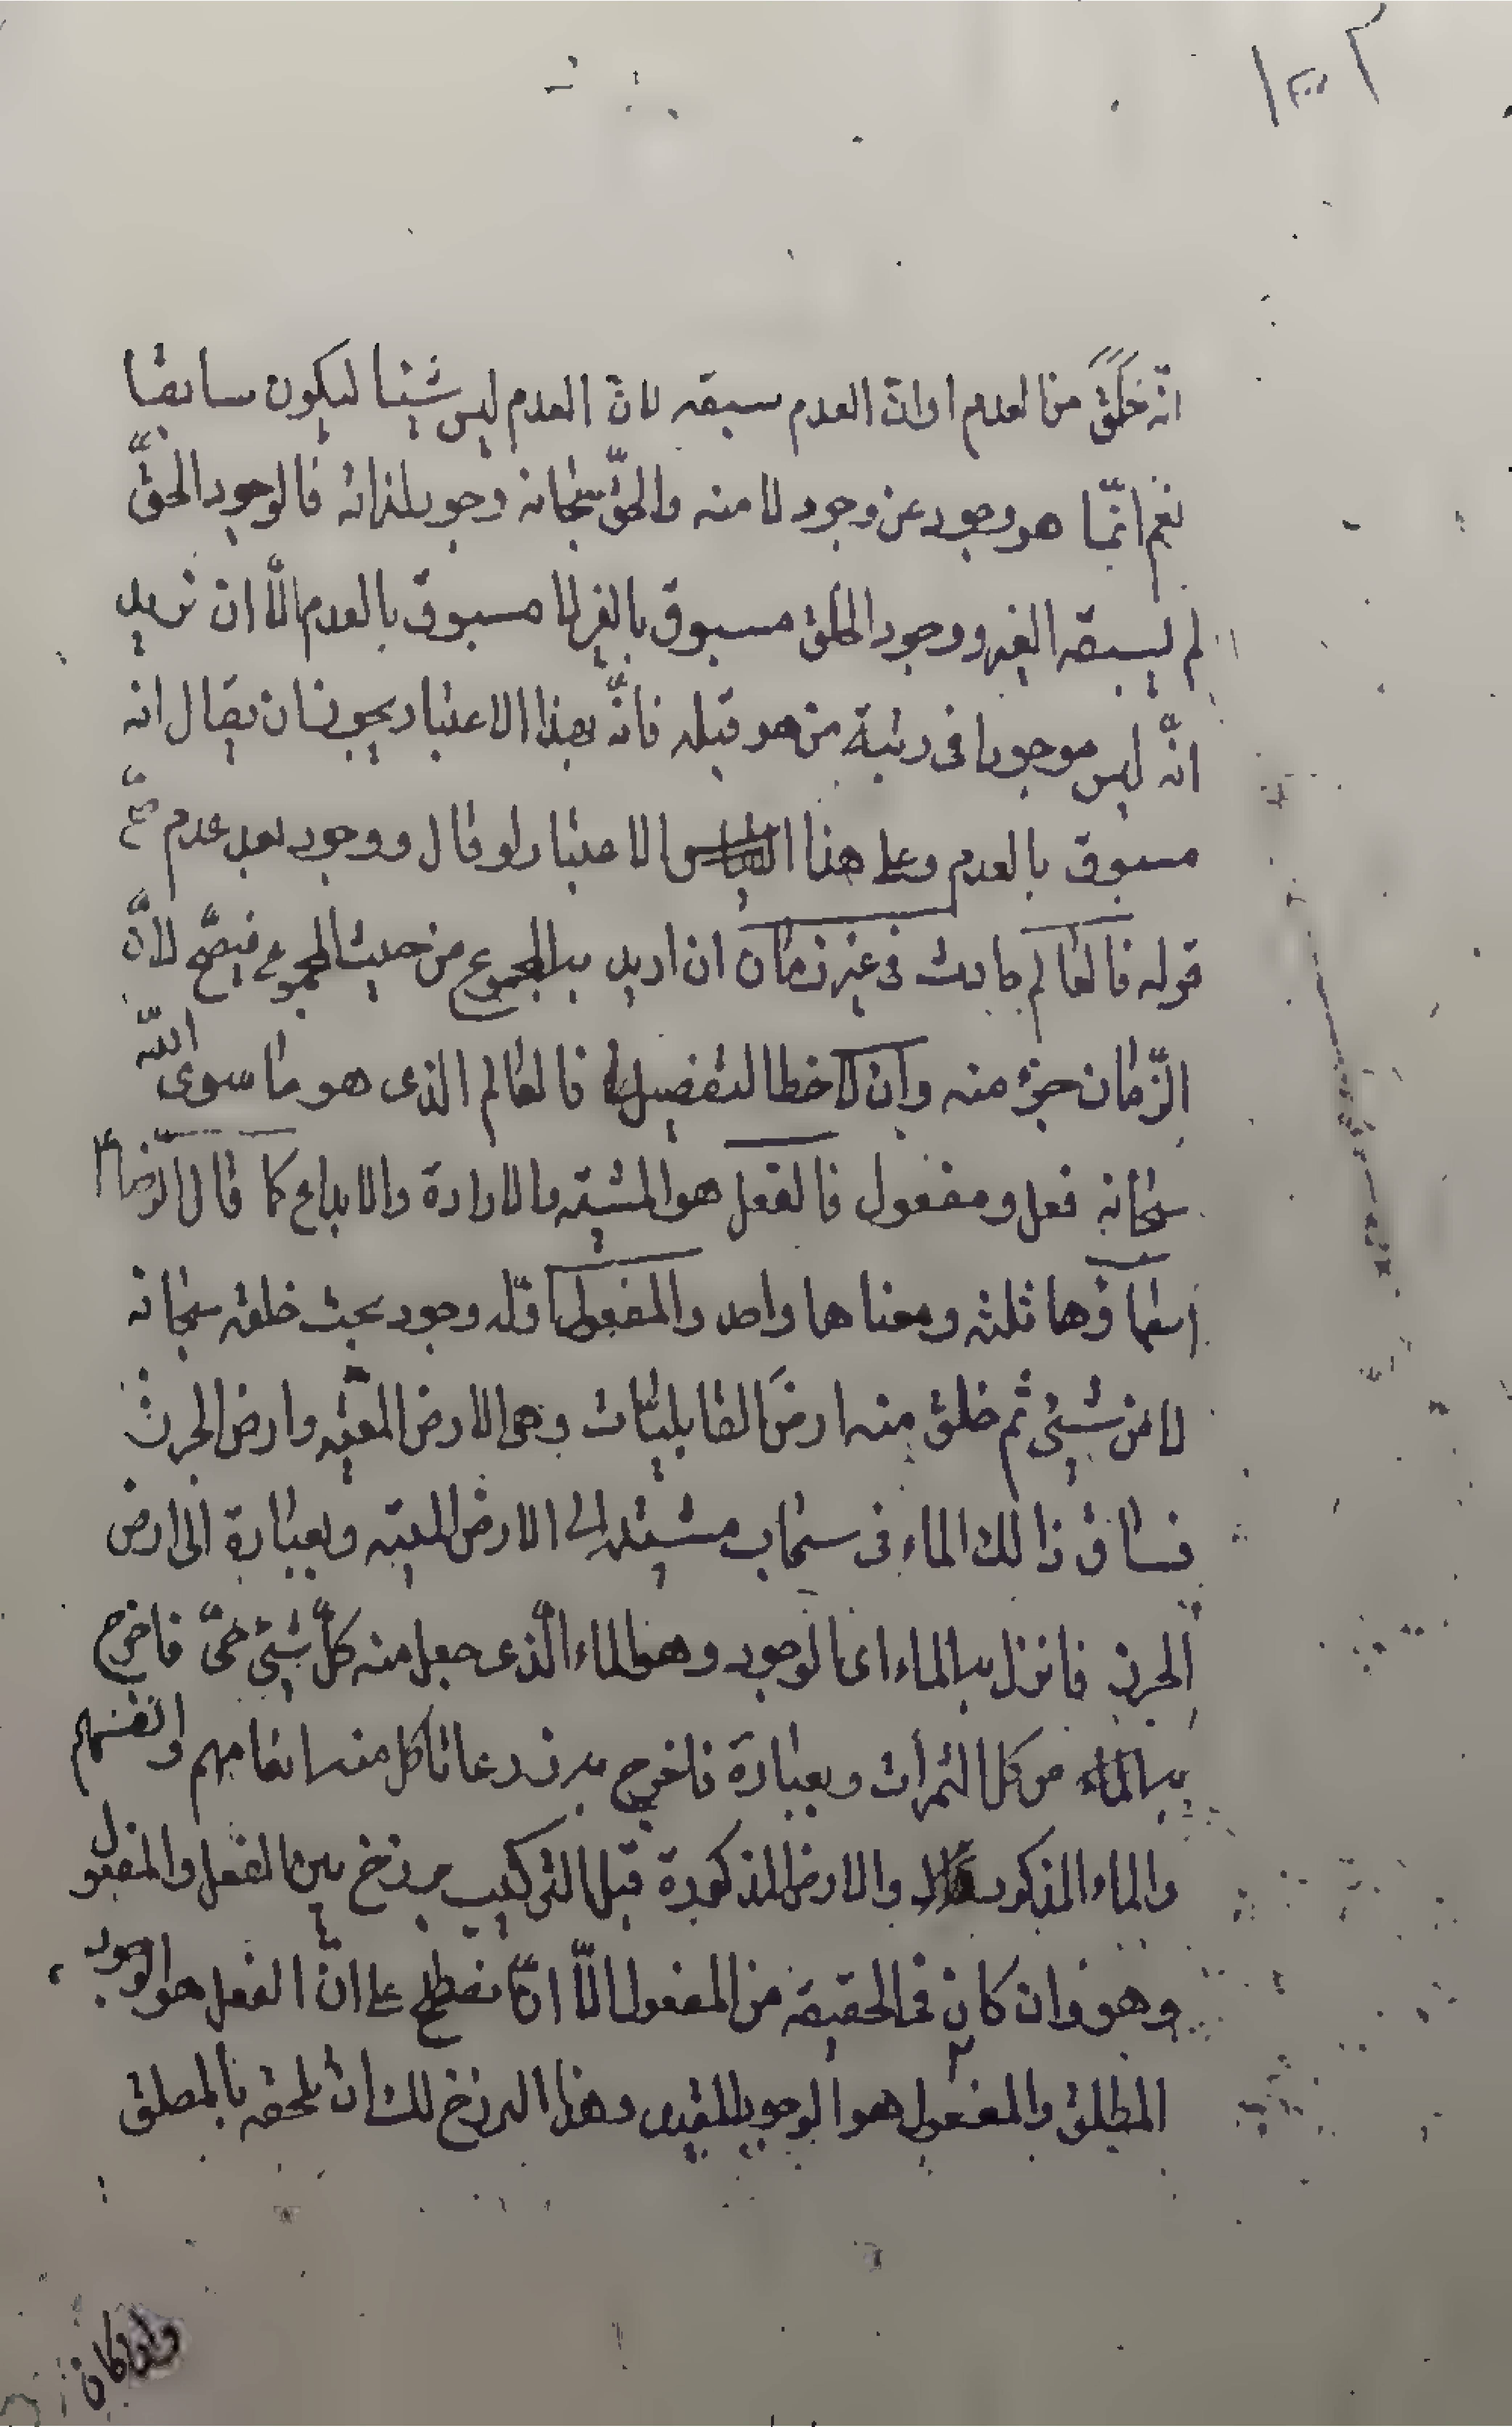 انّه خُلِقَ من العدم او انّ العدم سبقه لانّ العدم ليس شيئا ليكون سابقا
نعم انّما هو وجود عن وجود لا منه والحقّ سبحانه وجوبد لذاته فالوجود الحقّ
لم يسبقه الغير ووجود الخلق مسبوق بالغير لا مسبوق بالعدم الّا ان نريد
انّه ليس موجودا فى رتبة من هو قبله فانّه بهذا الاعتبار يجوز ان يقال انه
مسبوق بالعدم وعلى هذا الاعتبار لو قال ووجود بعد عدم صحّ
قوله فالعالم حادث فى غير زمان ان اريد به المجموع من حيث المجموع فيصحّ لانّ
الزّمان جزء منه وان لاحظنا التفصيل فالعالم الذى هو ما سوى الله
سبحانه فعل ومفعول فالفعل هو المشيّة والارادة والابداع كما قال الرّضا ع
اسماؤها ثلثه ومعناها واحد والمفعول اوّله وجود بحت خلقه سبحانه
لا من شيئ ثم خلق منه ارضَ القابليّات وهى الارض الميّته وارض الجرز
فساق ذالك الماء فى سحاب مشيته الى الارض الميته وبعبارة الى ارض
الجرز فانزل به الماء اى الوجود وهو الماء الّذى جعل منه كلّ شيئ حىّ فاخرج
به الماء من كل الثمرات وبعبارة فاخرج به زرعا تاكل منه انعامهم وانفسهم
والماء المذكور والارض المذكورة قبل التركيب برزخ بين الفعل والمفعول
وهو وان كان فى الحقيقة من المفعول الّا انّا نصطلح على انّ الفعل هو الوجود
المطلق والمفعول هو الوجود المقيد وهذا البرزخ لك ان تلحقه بالمطلق
وان كان